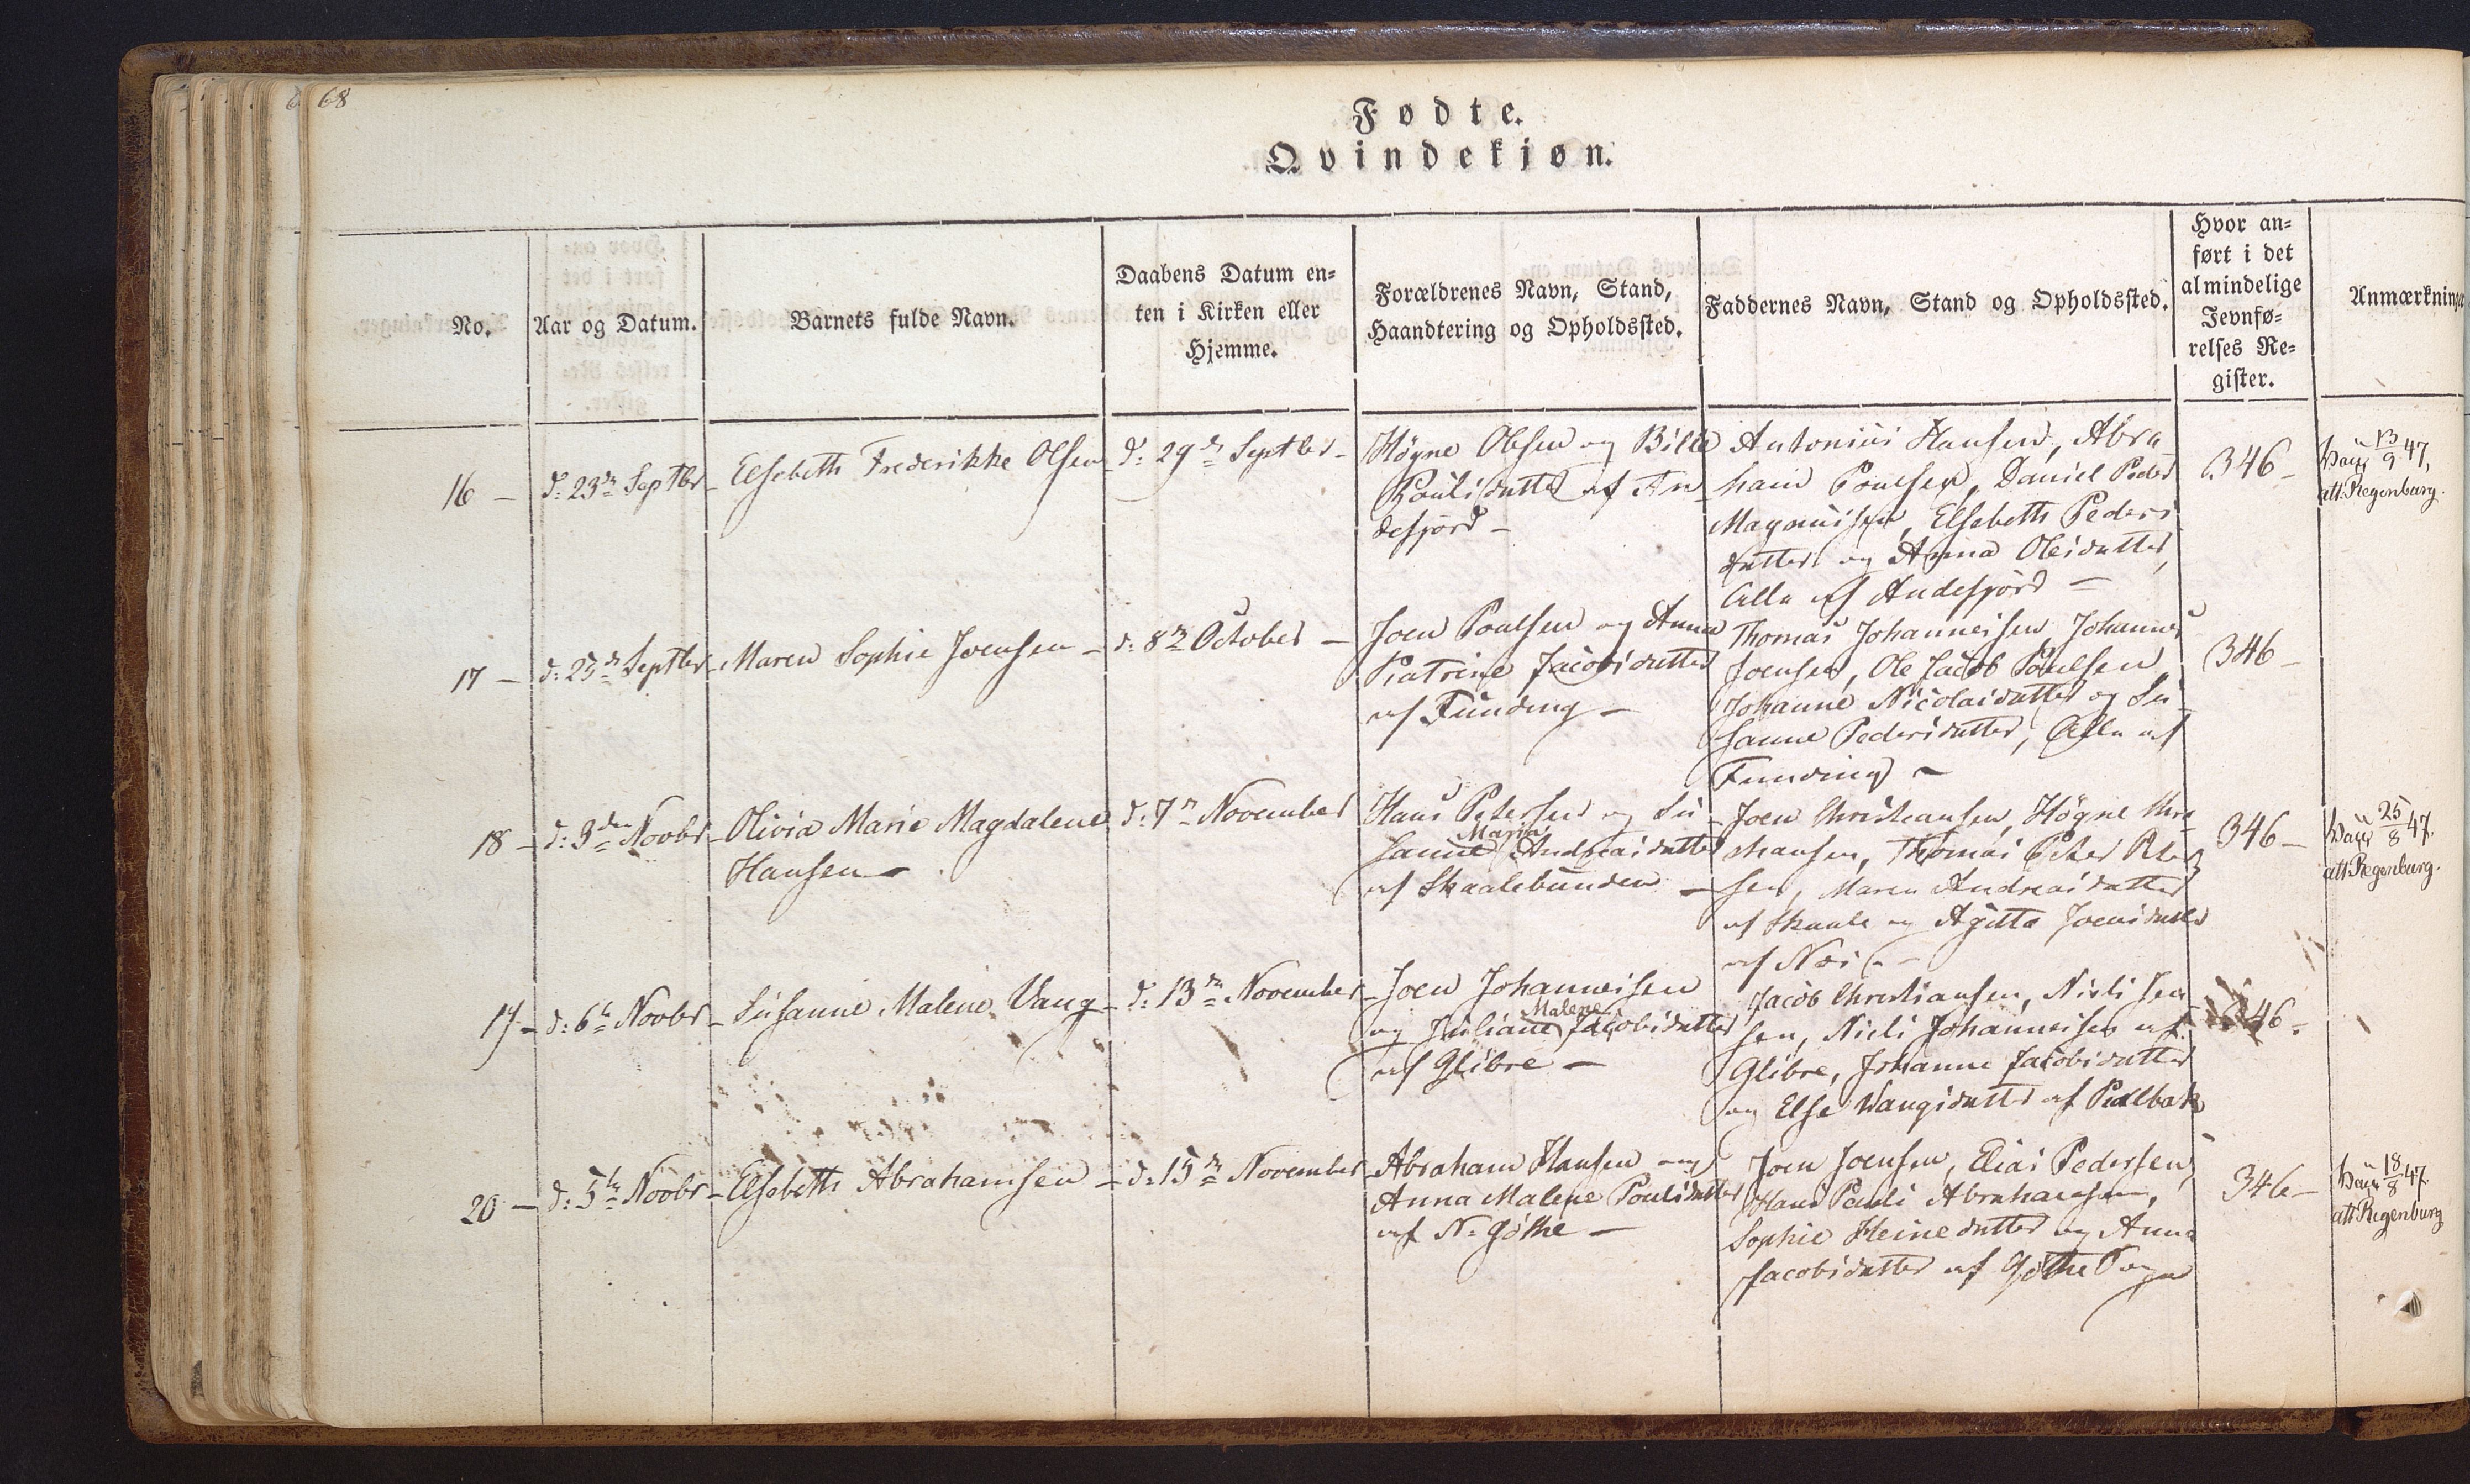 68
Fødte.
Qvindekjøn.
No.
Aar og Datum.
Barnets fulde Navn.
Daabens Datum en-
ten i Kirken eller
Hjemme.
Forældrenes Navn, Stand,
Haandtering og Opholdssted.
Faddernes Navn, Stand og Opholdssted.
Hvor an-
ført i det
almindelige
Jevnfø-
relses Re-
gister.
Anmærkninge
16 -
d: 23de Septbr
Elsebeth Frederikke Olsen
d: 29de Septbr -
Högne Olesen og Bille
Poulsdatter af An
desfjord -
Antonius Hansen, Abra
ham Poulsen, Daniel Peder
Magnussen, Elsebeth Peders
datter og Anna Olesdatter,
Alle af Andefjord -
346 -
Vacc 13/9 47,
att. Regenburg.
17 -
d: 25de Septbr
Maren Sophie Joensen -
d: 8de October -
Joen Poulsen og Anna
Katrine Jacobsdatter
af Funding -
Thomas Johannesen, Johannes
Joensen, Ole Jacob Poulsen,
Johanne Nicolaisdatter og Su
sanne Pedersdatter, Alle af
Funding -
346 -
18 -
d: 3den Novbr
Olivia Marie Magdalene
Hansen -
d: 7de November
Hans Petersen og Su
Maria
sanne Andreasdatter
af Skaalebunden -
Joen Christiansen, Högne Chri
stiansen, Thomas Peter Peter
sen, Maren Andreasdatter
af Skaale og Agitta Joensdatter
af Næs -
346 -
Vacc 25/8 47.
att Regenburg.
19 -
d: 6te Novbr
Susanne Malene Vang
d: 13de November
Joen Johannesen
Malene
og Juliane Jacobsdatter
af Glibre -
Jacob Christiansen, Niels Jen
sen, Niels Johannesen af
Glibre, Johanne Jacobsdatter
og Else Wangsdatter af Kialbak
346 -
20 -
d: 5te Novbr
Elsebeth Abrahamsen -
d: 15de November
Abraham Hansen og
Anna Malene Poulsdatter
af N. Göthe -
Joen Joensen, Elias Pedersen,
Hans Pauli Abrahamsen,
Sophie Heinedatter og Anna
Jacobsdatter af Göthe
346 -
Vacc 18/8 47.
att Regenburg